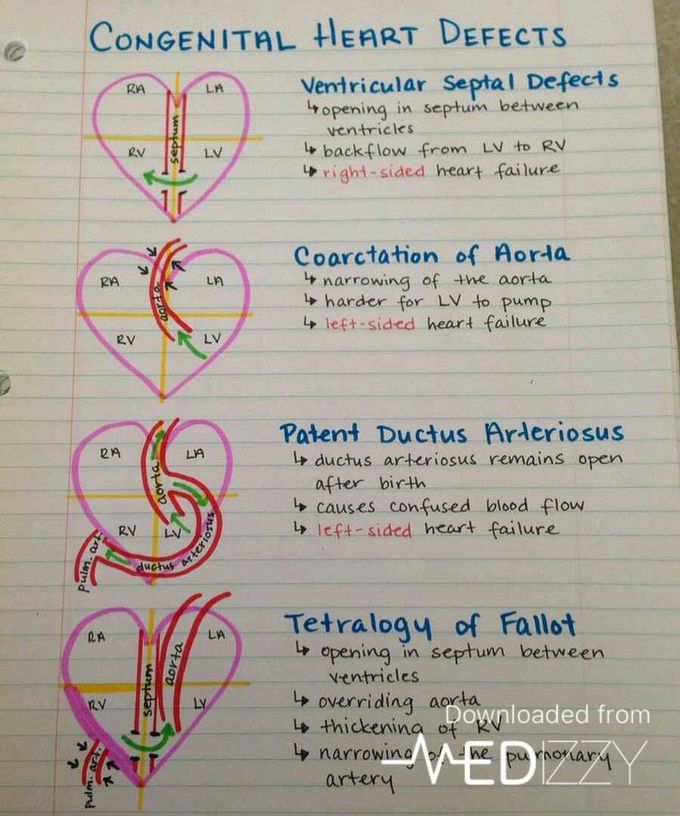 CONGENITAL HEART DEFECTS
RA LA
RV septum LV
Ventricular Septal Defects
↳ opening in septum between
ventricles
↳ backflow from LV to RV
↳ right-sided heart failure
RA aorta LA
RV LV
Coarctation of Aorta
↳ narrowing of the aorta
↳ harder for LV to pump
↳ left-sided heart failure
RA aorta LA
RV LV
pulm. art. ductus arteriosus
Patent Ductus Arteriosus
↳ ductus arteriosus remains open
after birth
↳ causes confused blood flow
↳ left-sided heart failure
RA aorta LA
RV septum LV
pulm. art.
Tetralogy of Fallot
↳ opening in septum between
ventricles
↳ overriding aorta
↳ thickening of RV
↳ narrowing of the pulmonary
artery
Downloaded from
MEDIZZY